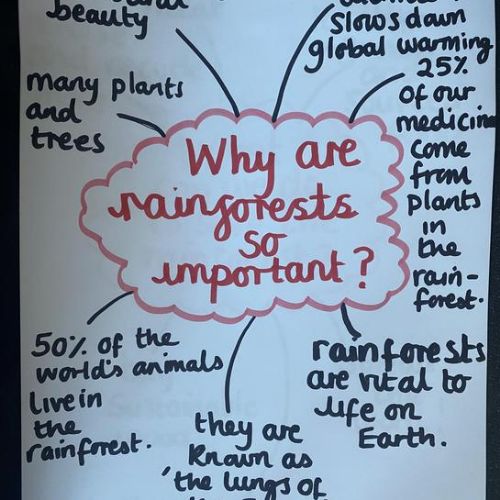 beauty
slows down
global warming
many plants
and
trees
25%
of our
medicine
come
from
plants
in
the
rain-
forest.
Why are
rainforests
so
important?
50% of the
world's animals
live in
the
rainforest.
they are
known as
'the lungs of
rainforests
are vital to
life on
Earth.